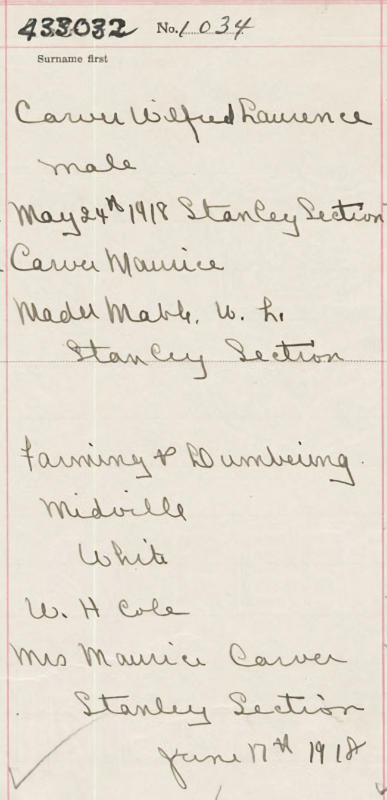 433032 No. 1034
Surname first
Carver Wilfred Laurence
male
May 24th 1918 Stanley Section
Carver Maurice
Mader W. L.
Stanley Section
Farming & Lumbering
Midville
White
W. H Cole
Mrs Maurice Carver
Stanley Section
June 17th 1918